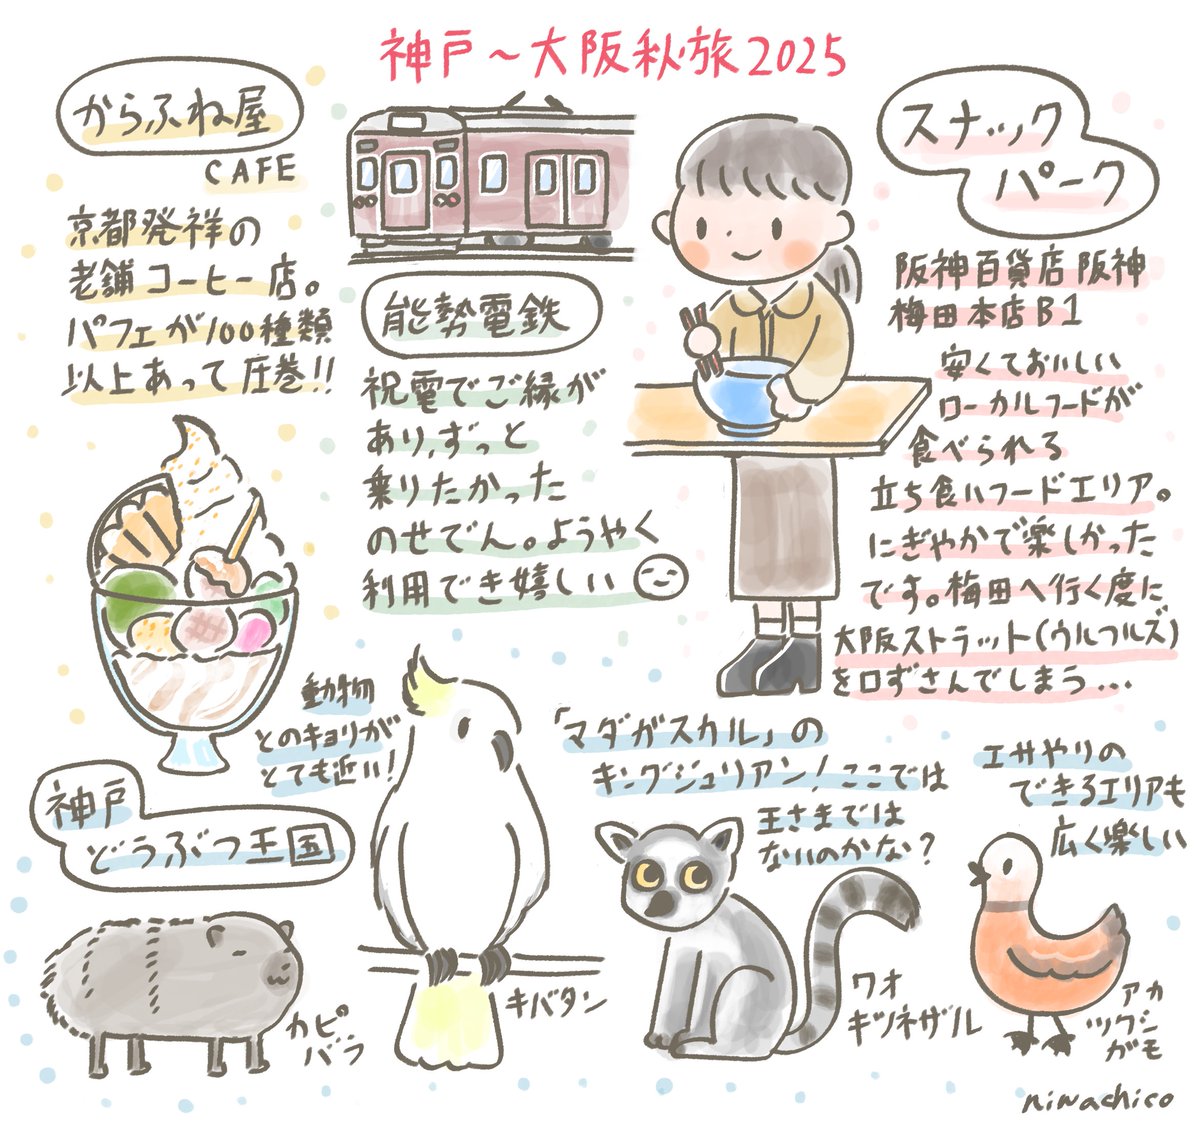 神戸〜大阪秋旅2025
からふね屋
CAFE
京都発祥の
老舗コーヒー店。
パフェが100種類
以上あって圧巻!!
能勢電鉄
祝電でご縁が
あり、ずっと
乗りたかった
のせでん。ようやく
利用でき嬉しい
スナック
パーク
阪神百貨店阪神
梅田本店B1
安くておいしい
ローカルフードが
食べられる
立ち食いフードエリア。
にぎやかで楽しかった
です。梅田へ行く度に
大阪ストラット(ウルフルズ)
を口ずさんでしまう…
神戸
どうぶつ王国
動物
とのキョリが
とても近い!
カピ
バラ
キバタン
「マダガスカル」の
キングジュリアン!ここでは
王さまでは
ないのかな?
ワオ
キツネザル
エサやりの
できるエリアも
広く楽しい
アカ
ツクシ
ガモ
niwachico